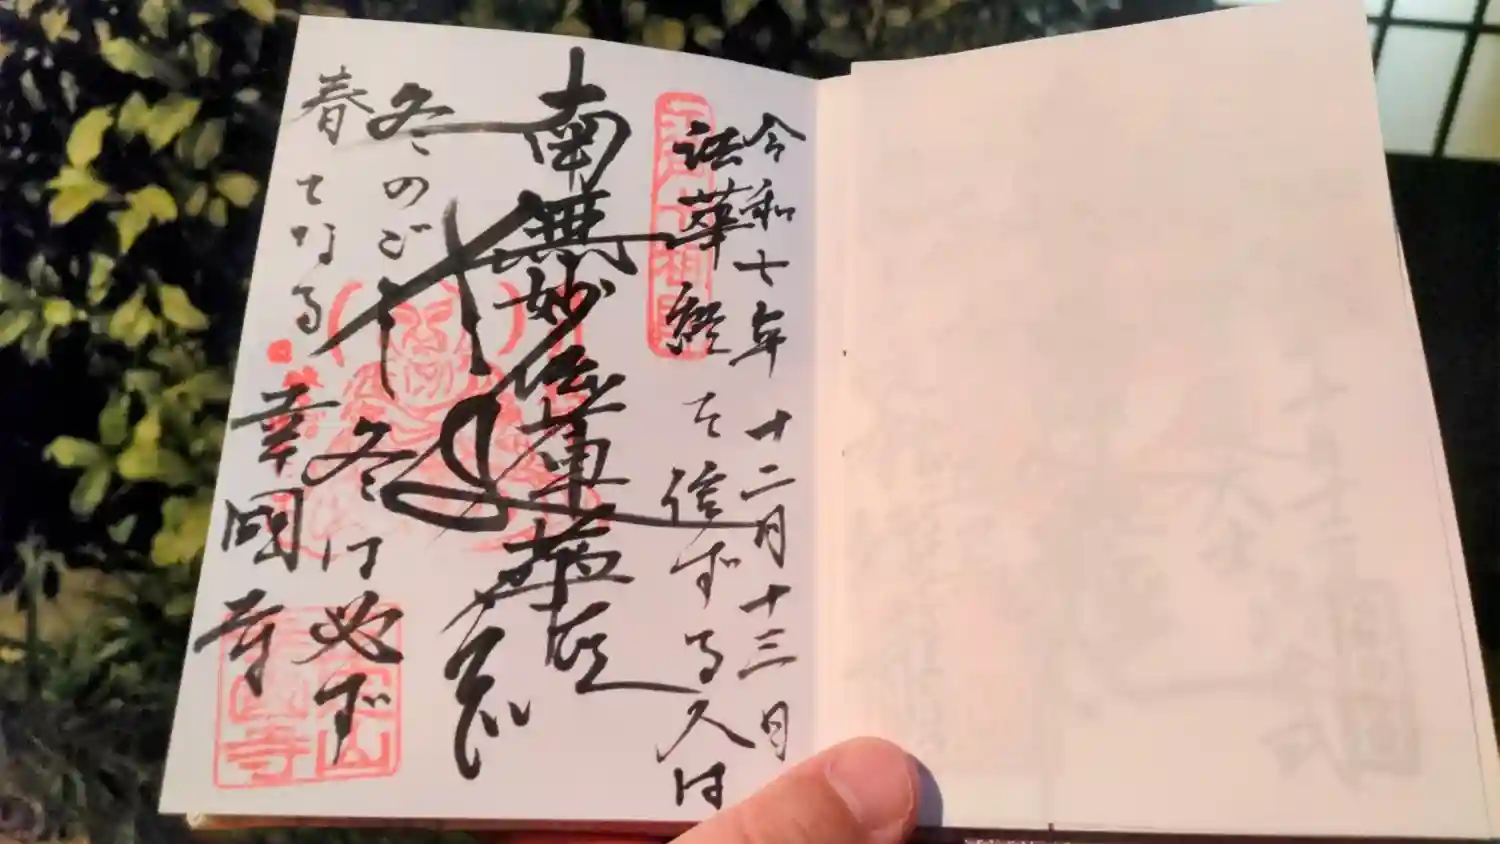 令和七年 十二月十三日
法華経を信ずる人は
南無妙法蓮華経
冬のごとし 冬は必ず
春となる
幸國寺